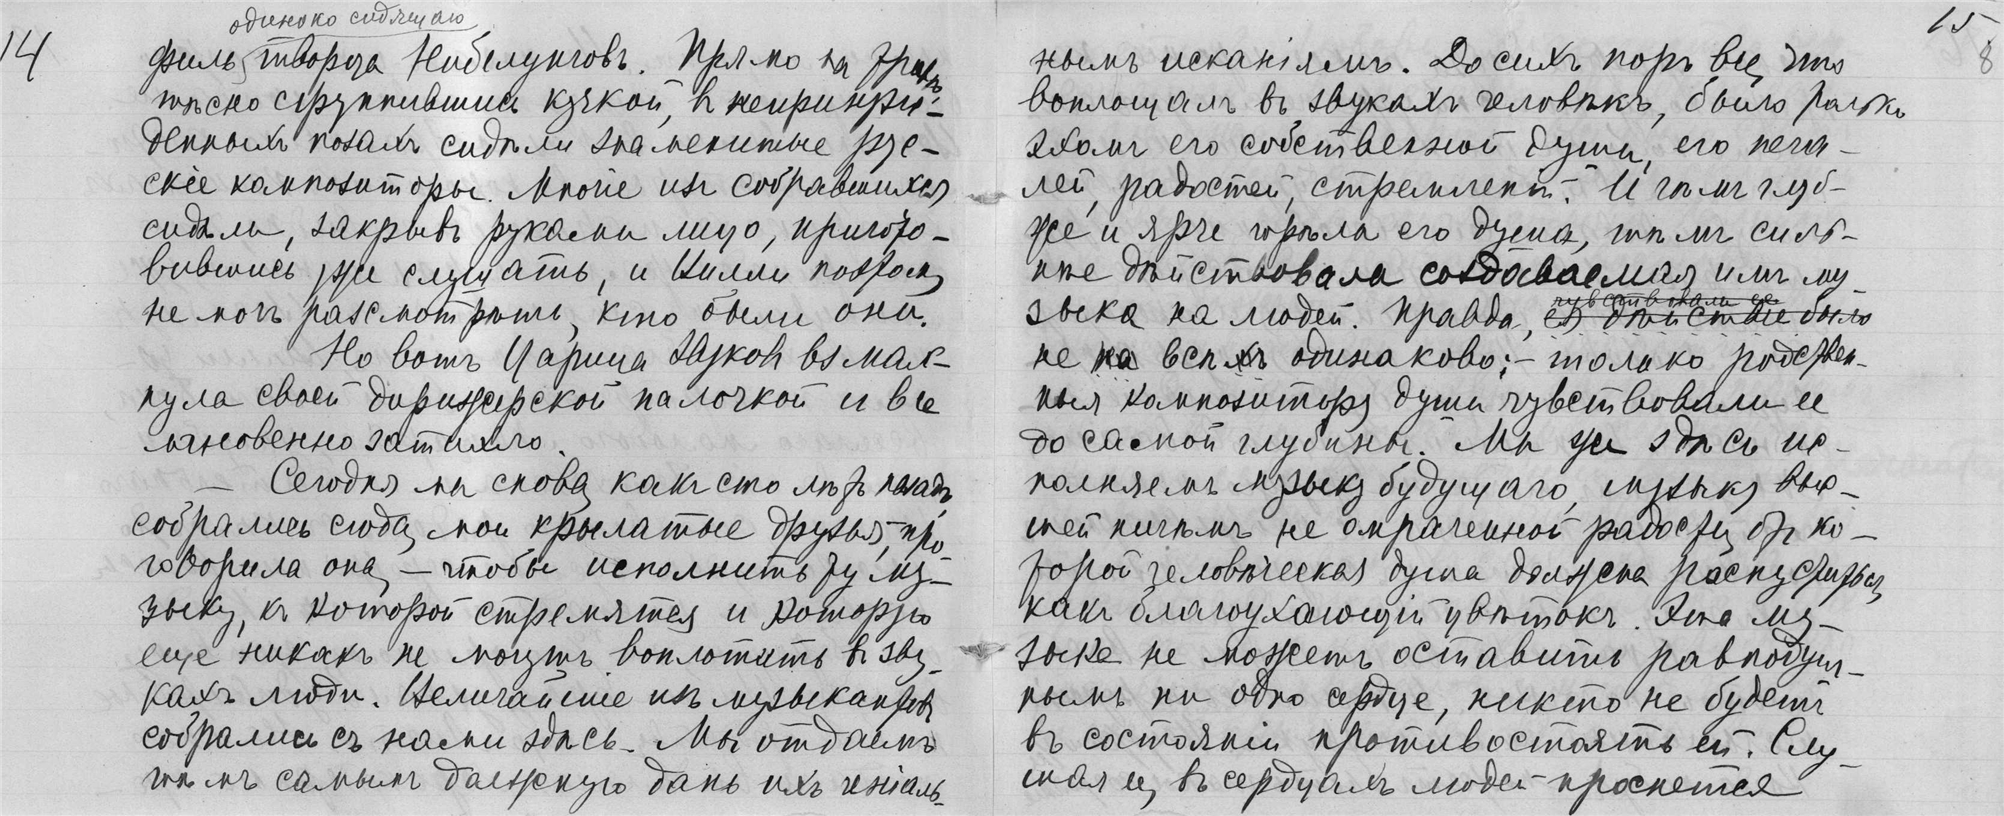 14
одиноко сидящаго
филь творца Нибелунговъ. Прямо на травѣ,
тѣсно сгруппившись кучкой, въ непринуж-
денныхъ позахъ сидѣли знаменитые рус-
скіе композиторы. Многіе изъ собравшихся
сидѣли, закрывъ руками лицо, пригото-
вившись уже слушать, и Вилли поэтому
не могъ разсмотрѣть, кто были они.
Но вотъ Царица Звуковъ взмах-
нула своей дирижерской палочкой и все
мгновенно затихло.
— Сегодня мы снова, какъ сто лѣтъ назадъ,
собрались сюда, мои крылатые друзья, — про-
говорила она, — чтобы исполнить ту му-
зыку, къ которой стремятся и которую
еще никакъ не могутъ воплотить въ зву-
кахъ люди. Величайшіе изъ музыкантовъ
собрались съ нами здѣсь. Мы отдаемъ
тѣмъ самымъ должную дань ихъ геніаль-
15
8
нымъ исканіямъ. До сихъ поръ все, что
воплощалъ въ звукахъ человѣкъ, было только
эхомъ его собственной души, его печа-
лей, радостей, стремленій. И чѣмъ глуб-
же и ярче горѣла его душа, тѣмъ силь-
нѣе дѣйствовала создаваемая имъ му-
зыка на людей. Правда, ея дѣйствіе было
чувствовали ее
не на всѣхъ одинаково; — только родствен-
ныя композитору души чувствовали ее
до самой глубины. Мы же здѣсь ис-
полняемъ музыку будущаго, музыку выс-
шей ничѣмъ не омраченной радости, отъ ко-
торой человѣческая душа должна распуститься,
какъ благоухающій цвѣтокъ. Эта му-
зыка не можетъ оставить равнодуш-
нымъ ни одно сердце, никто не будетъ
въ состояніи противостоять ей. Слу-
шая ее, въ сердцахъ людей проснется